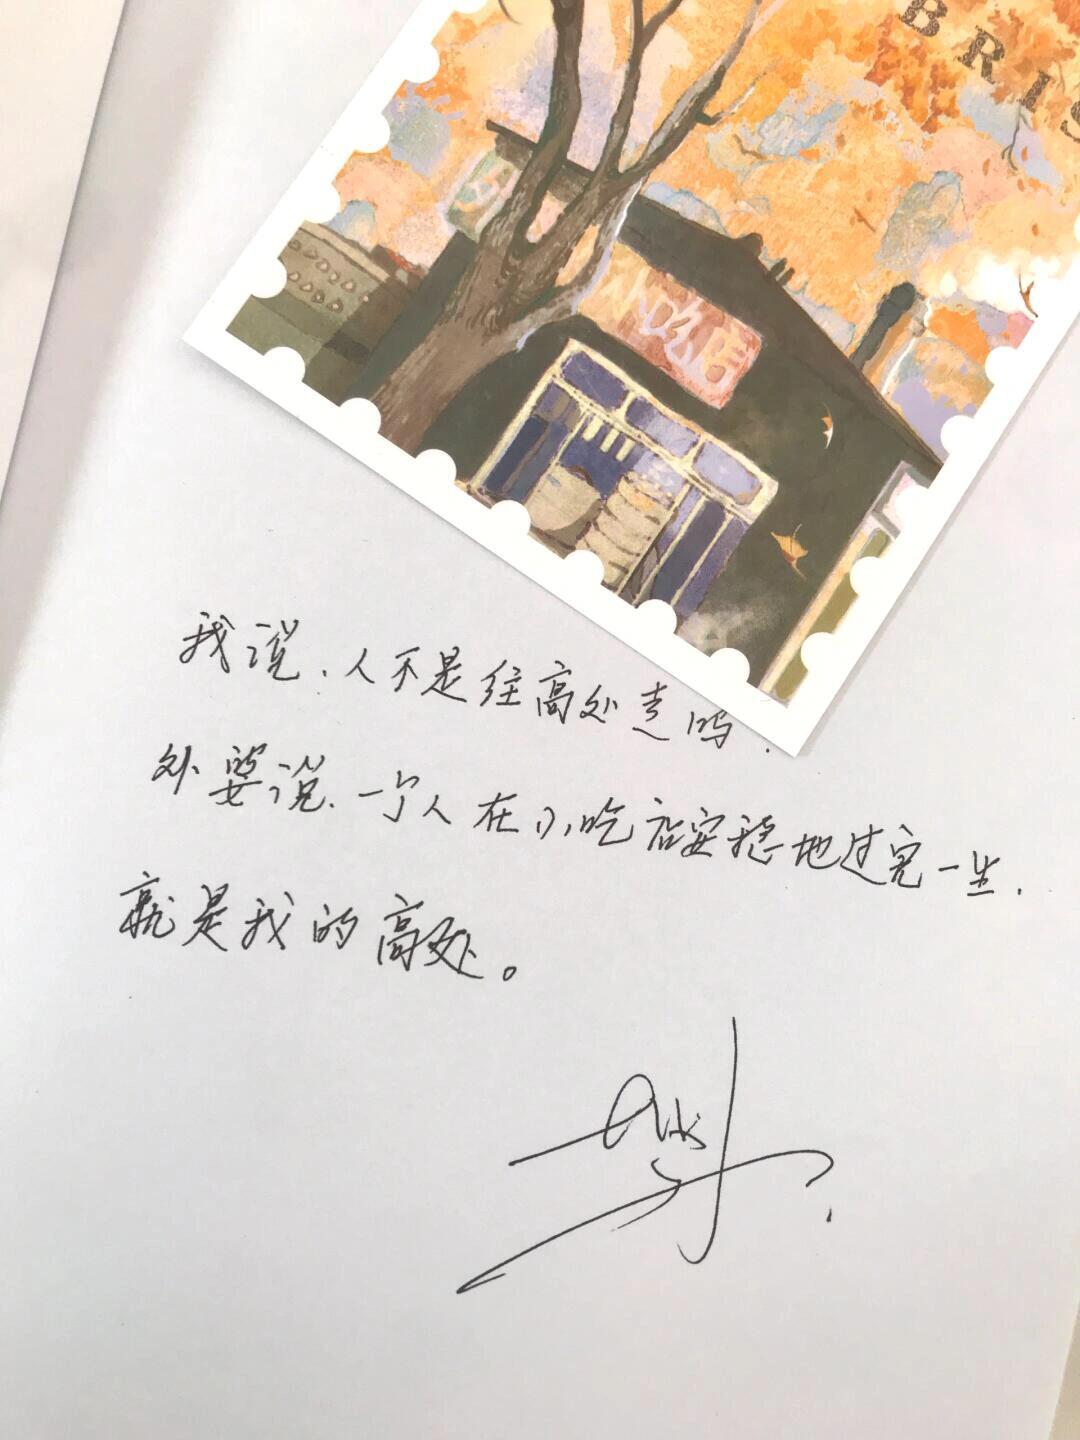 BRIS
小吃店
我说.人不是往高处走吗.
外婆说.一个人在小吃店安稳地过完一生.
就是我的高处。